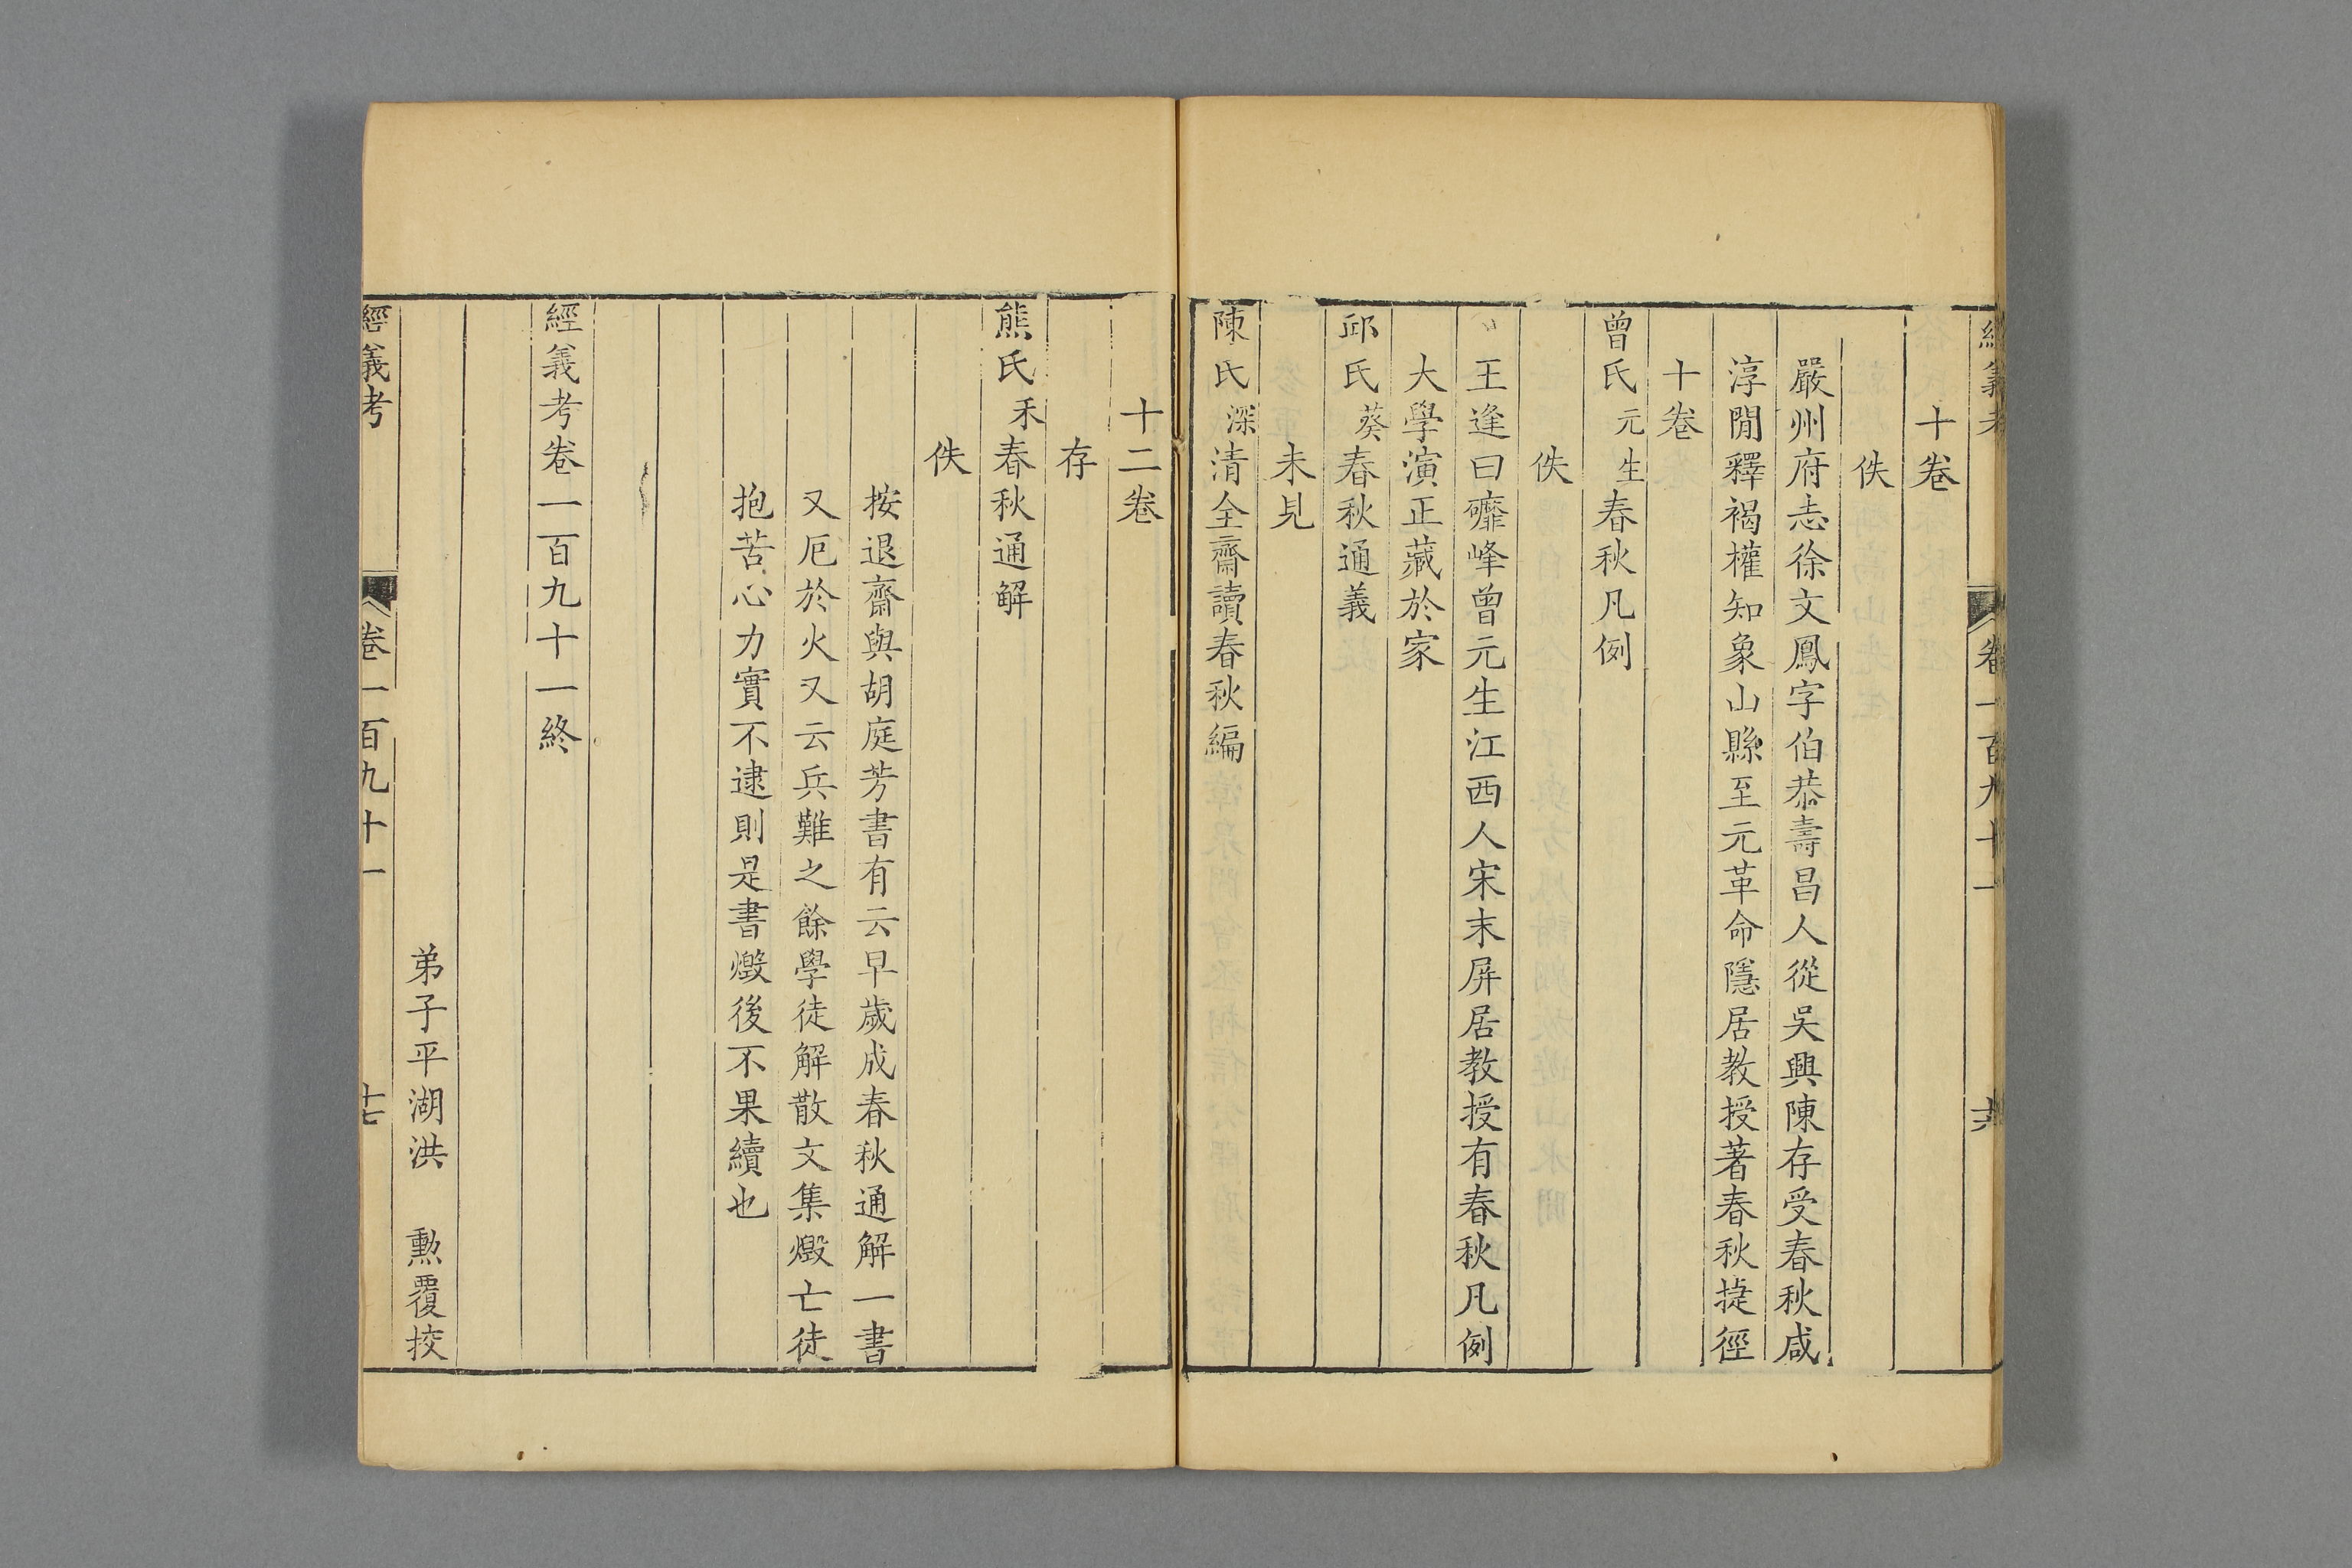 經義考 卷一百九十一 十六
十卷
佚
嚴州府志徐文鳳字伯恭壽昌人從吳興陳存受春秋咸
淳閒釋褐權知象山縣至元革命隱居教授著春秋捷徑
十卷
曾氏元生春秋凡例
佚
王逢曰䃺峰曾元生江西人宋末屏居教授有春秋凡例
大學演正藏於家
邱氏葵春秋通義
未見
陳氏深清全齋讀春秋編
十二卷
存
熊氏禾春秋通解
佚
按退齋與胡庭芳書有云早歲成春秋通解一書
又厄於火又云兵難之餘學徒解散文集燬亡徒
抱苦心力實不逮則是書燬後不果續也
經義考卷一百九十一終
弟子平湖洪 勲覆挍
經義考 卷一百九十一 十七